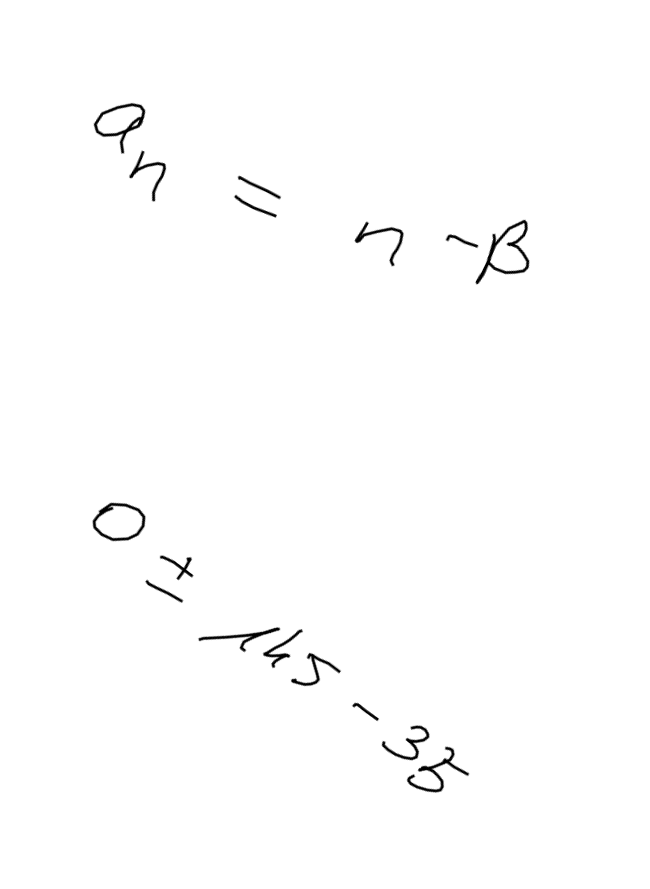 aₙ = n - β
0 ± 145 - 35